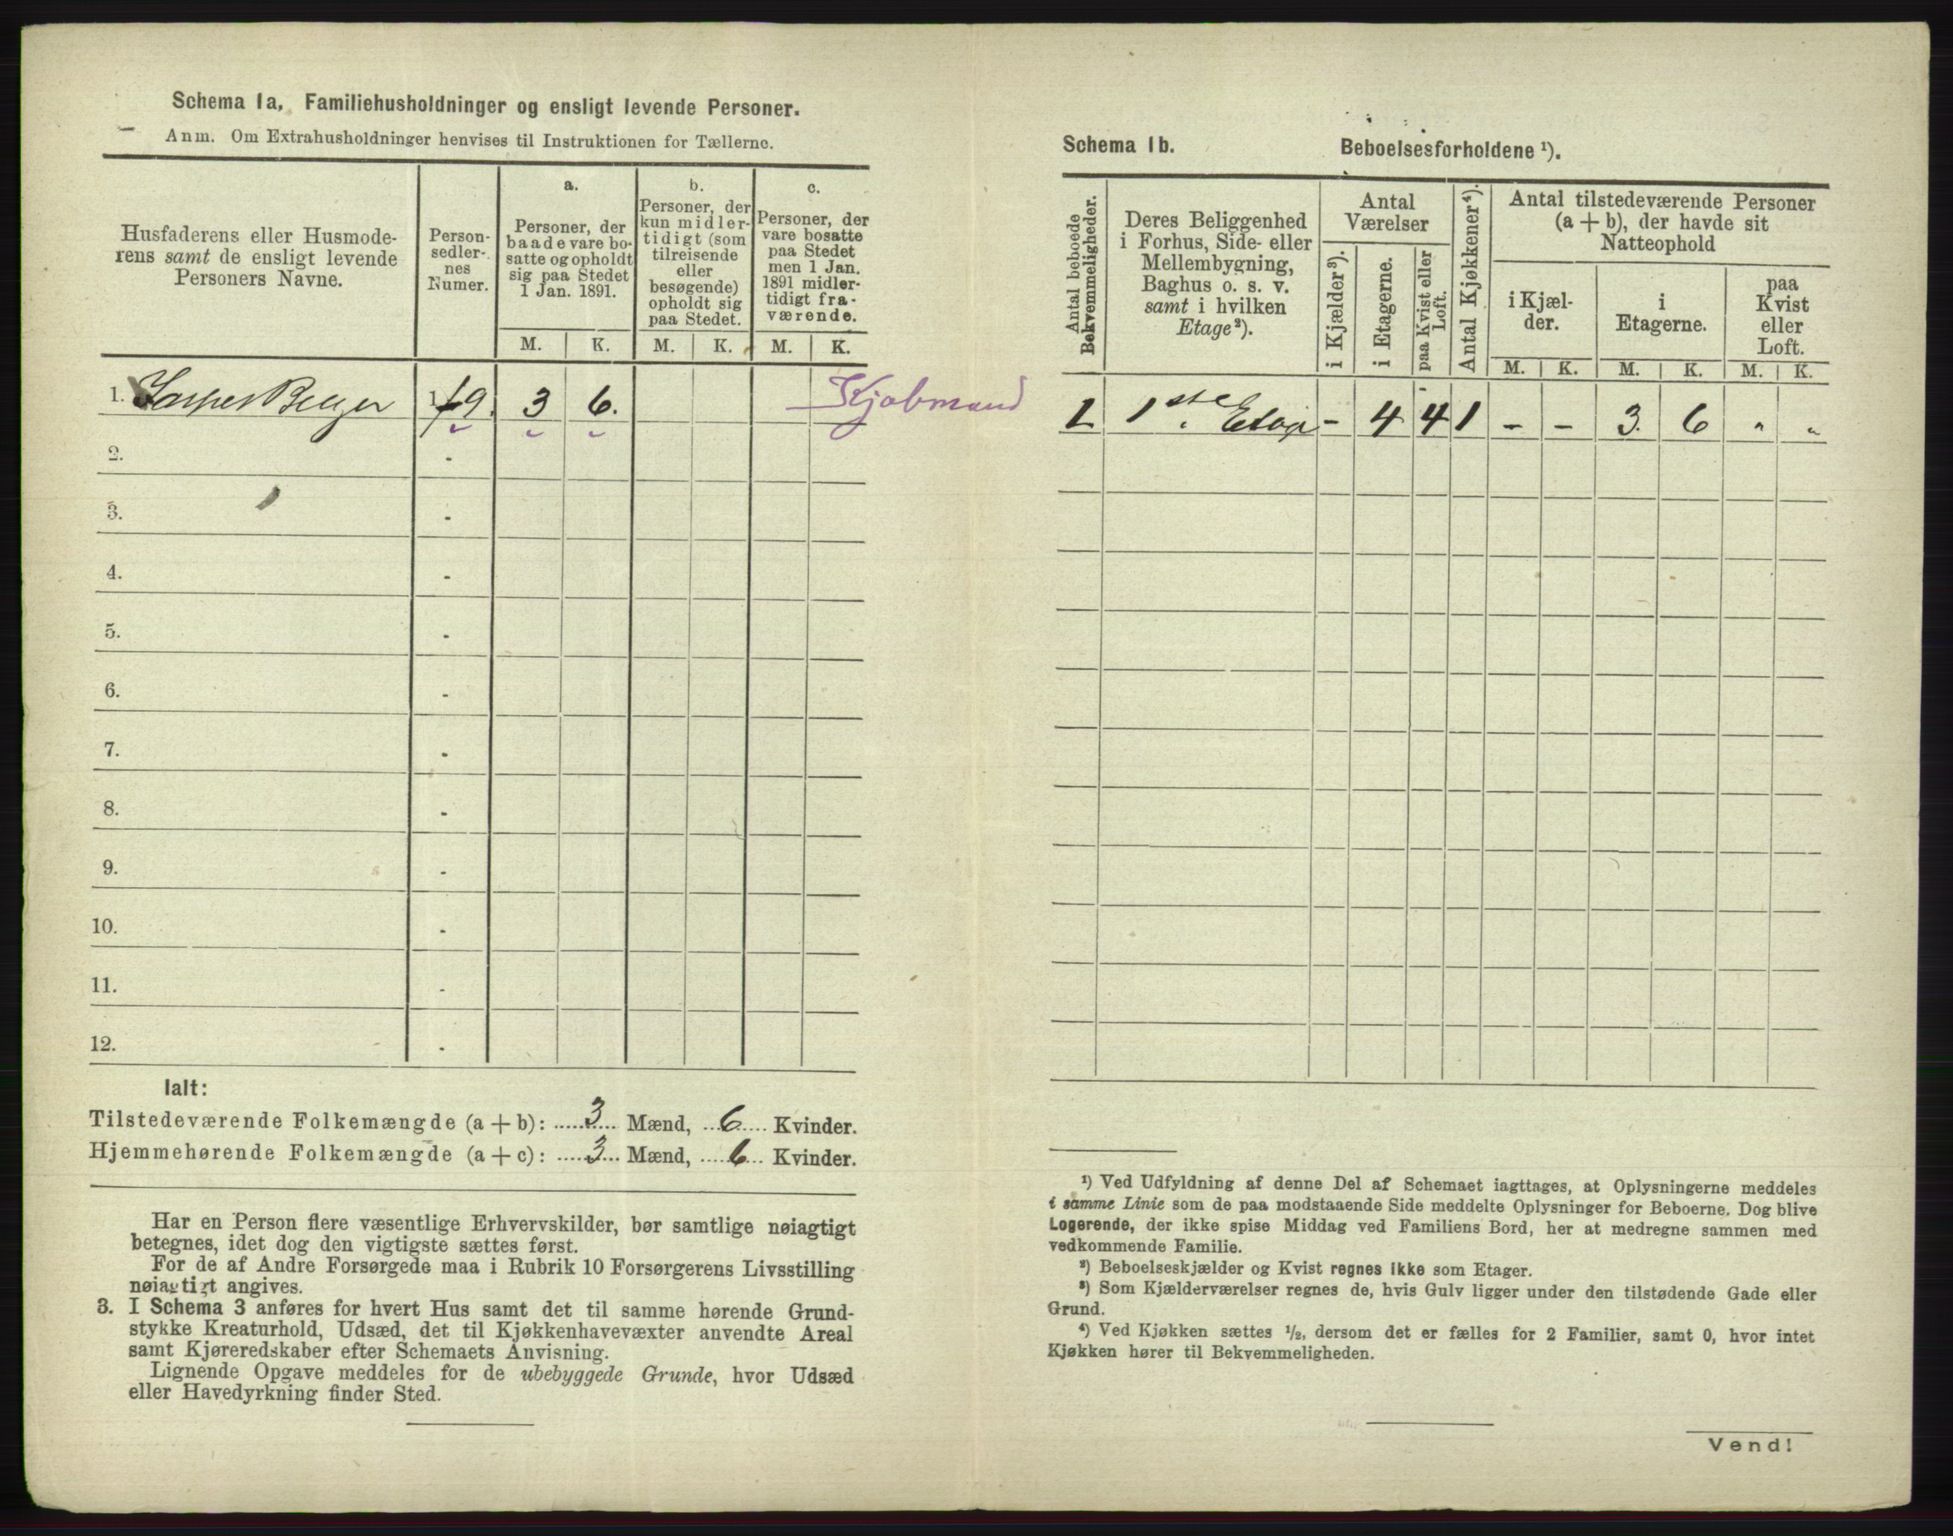 Schema 1a. Familiehusholdninger og ensligt levende Personer.
Anm. Om Extrahusholdninger henvises til Instruktionen for Tællerne.
Husfaderens eller Husmode-
rens samt de ensligt levende
Personers Navne.
Person-
sedler-
nes
Numer.
a.
Personer, der
baade vare bo-
satte og opholdt
sig paa Stedet
1 Jan. 1891.
b.
Personer, der
kun midler-
tidigt (som
tilreisende
eller
besøgende)
opholdt sig
paa Stedet.
c.
Personer, der
vare bosatte
paa Stedet
men 1 Jan.
1891 midler-
tidigt fra-
værende.
M. K. M. K. M. K.
1. Jasper Berger 1-9. 3 6. Kjøbmand
2. -
3. -
4. -
5. -
6. -
7. -
8. -
9. -
10. -
11. -
12. -
Ialt:
Tilstedeværende Folkemængde (a + b): 3 Mænd, 6 Kvinder.
Hjemmehørende Folkemængde (a + c): 3 Mænd, 6 Kvinder.
Har en Person flere væsentlige Erhvervskilder, bør samtlige nøiagtigt
betegnes, idet dog den vigtigste sættes først.
For de af Andre Forsørgede maa i Rubrik 10 Forsørgerens Livsstilling
nøiagtigt angives.
3. I Schema 3 anføres for hvert Hus samt det til samme hørende Grund-
stykke Kreaturhold, Udsæd, det til Kjøkkenhavevæxter anvendte Areal
samt Kjøreredskaber efter Schemaets Anvisning.
Lignende Opgave meddeles for de ubebyggede Grunde, hvor Udsæd
eller Havedyrkning finder Sted.
Schema 1b. Beboelsesforholdene ¹).
Antal beboede
Bekvemmeligheder.
Deres Beliggenhed
i Forhus, Side- eller
Mellembygning,
Baghus o. s. v.
samt i hvilken
Etage²).
Antal
Værelser
i Kjælder³).
i Etagerne.
paa Kvist eller
Loft.
Antal Kjøkkener⁴).
Antal tilstedeværende Personer
(a + b), der havde sit
Natteophold
i Kjæl-
der.
i
Etagerne.
paa
Kvist
eller
Loft.
M. K. M. K. M. K.
1 1ste Etage - 4 4 1 - - 3. 6 " "
¹) Ved Udfyldning af denne Del af Schemaet iagttages, at Oplysningerne meddeles
i samme Linie som de paa modstaaende Side meddelte Oplysninger for Beboerne. Dog blive
Logerende, der ikke spise Middag ved Familiens Bord, her at medregne sammen med
vedkommende Familie.
²) Beboelseskjælder og Kvist regnes ikke som Etager.
³) Som Kjælderværelser regnes de, hvis Gulv ligger under den tilstødende Gade eller
Grund.
⁴) Ved Kjøkken sættes ½, dersom det er fælles for 2 Familier, samt 0, hvor intet
Kjøkken hører til Bekvemmeligheden.
Vend!